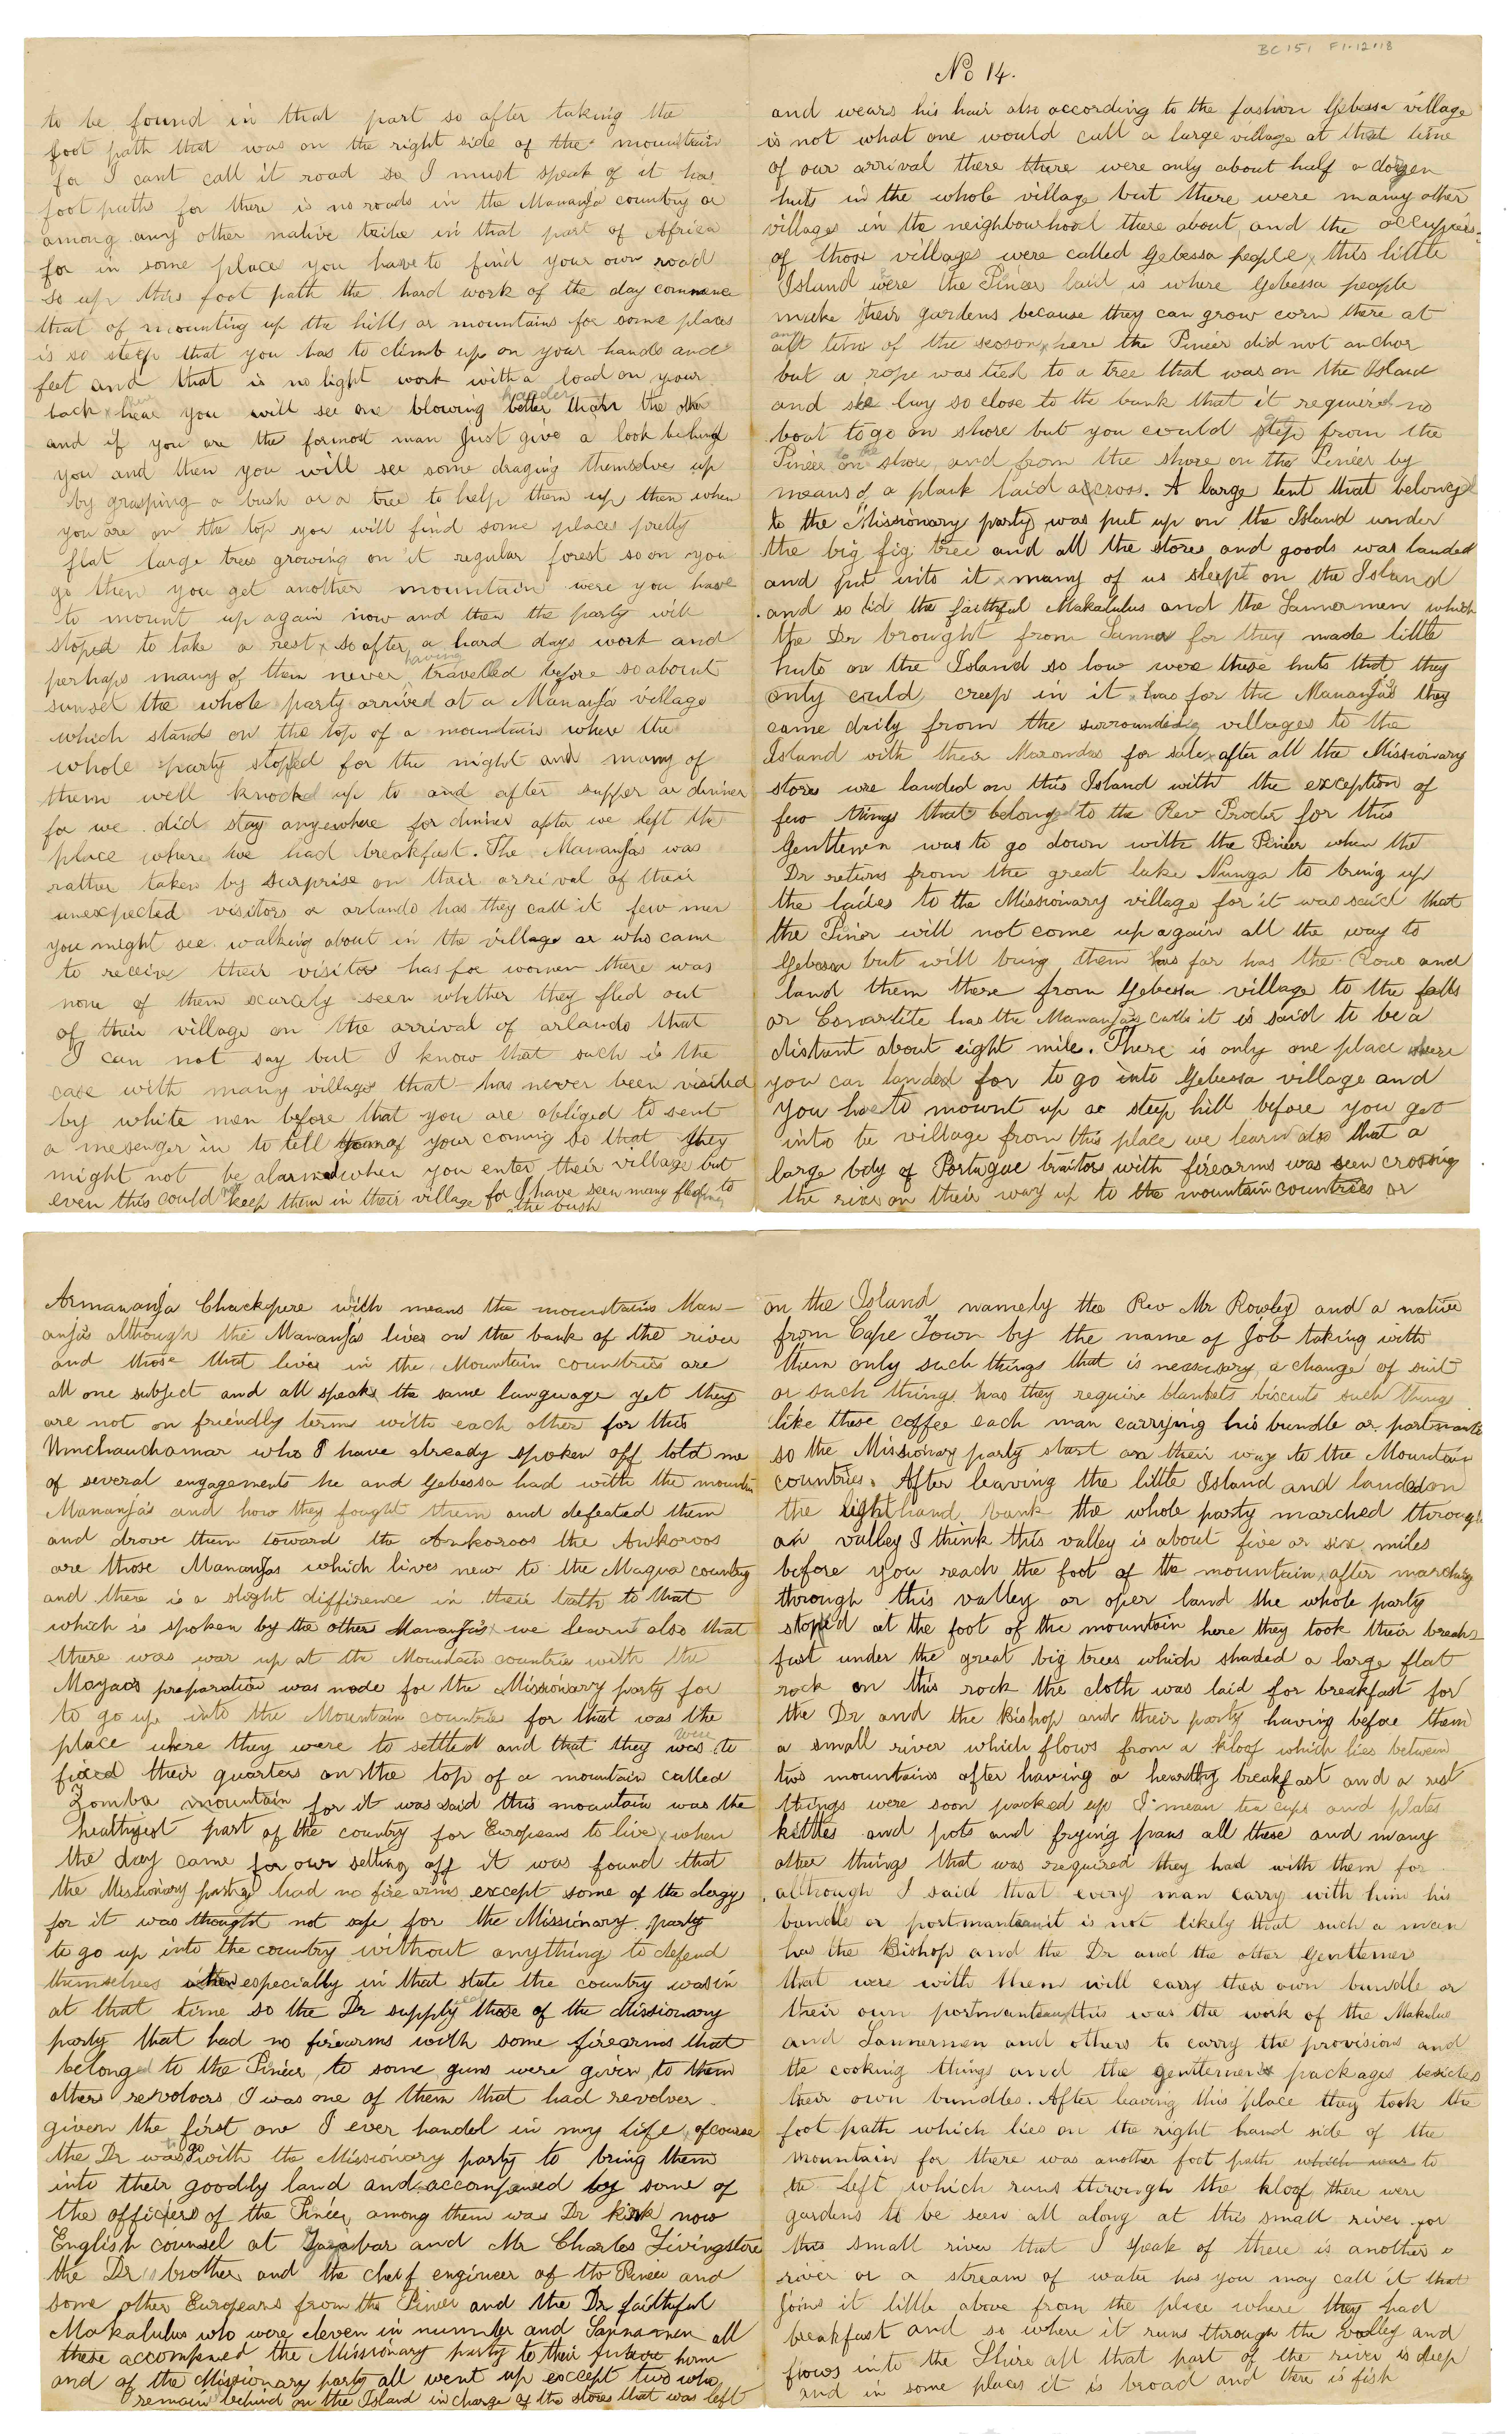 to be found in that part so after taking the
foot path that was on the right side of the mountain
for I cant call it road so I must speak of it has
foot paths for there is no roads in the Mananja country or
among any other native tribe in that part of Africa
for in some place you have to find your own road
so up this foot path the hard work of the day commence
that of mounting up the hills or mountains for some places
is so steep that you has to climb up on your hands and
feet and that is no light work with a load on your
back hear you will see one blowing harder than the other
and if you are the formost man Just give a look behind
you and then you will see some draging themselve up
by grasping a bush or a tree to help them up then when
you are on the top you will find some places pretty
flat large trees growing on it regular forest so on you
go then you get another mountain were you have
to mount up again now and then the party will
stoped to take a rest x so after a hard days work and
perhaps many of them never having travelled before so about
sunset the whole party arrived at a Mananja village
which stands on the top of a mountain where the
whole party stoped for the night and many of
them well knocked up to and after supper or dinner
for we did stay anywhere for dinner after we left the
place where we had breakfast. The Mananjas was
rather taken by surprise on their arrival of their
unexpected visitors or arlando has they call it few men
you might see walking about in the village or who came
to receive their visitor has for women there was
none of them scarcely seen whether they fled out
of their village on the arrival of arlando that
I can not say but I know that such is the
case with many villages that has never been visited
by white men before that you are obliged to sent
a mesenger in to tell them of your coming so that they
might not be alarmed when you enter their village but
even this could not keep them in their village for I have seen many fleeing to
the bush
BC 151 F1.12.18
No 14.
and wears his hair also according to the fashion Gebessa village
is not what one would call a large village at that time
of our arrival there there were only about half a dozen
huts in the whole village but there were many other
villages in the neighbourhood there about and the occupiers
of those villages were called Gebessa people x this little
Island were the Pineer laid is where Gebessa people
make their gardens because they can grow corn there at
any time of the season x here the Pineer did not anchor
but a rope was tied to a tree that was on the Island
and she lay so close to the bank that it required no
boat to go on shore but you could step from the
Pineer on to the shore and from the shore on the Pineer by
means of a plank laid across. A large tent that belonged
to the Missionary party was put up on the Island under
the big fig tree and all the stores and goods was landed
and put into it x many of us sleept on the Island
and so did the faithful Makalulus and the Sannamen which
the Dr brought from Sanna for they made little
huts on the Island so low were these huts that they
only could creep in it x has for the Mananjas they
came daily from the surrounding villages to the
Island with their Marondas for sale x after all the Missionary
stores were landed on this Island with the exception of
few things that belonged to the Rev Procter for this
Gentlemen was to go down with the Pineer when the
Dr returns from the great lake Nunga to bring up
the ladies to the Missionary village for it was said that
the Pineer will not come up again all the way to
Gebessa but will bring them has far has the Rouo and
land them there from Gebessa village to the falls
or Conartite has the Mananjas calls it is said to be a
distant about eight mile. There is only one place where
you can landed for to go into Gebessa village and
you have to mount up a steep hill before you get
into te village from this place we learn also that a
large body of Portugue traitors with firearms was seen crossing
the river on their way up to the mountain countries or
Armananja Chackpere with means the mountains Man-
anjas although the Mananjas lives on the bank of the river
and those that lives in the Mountain countries are
all one subject and all speaks the same language yet they
are not on friendly terms with each other for this
Umchauchamar who I have already spoken off told me
of several engagements he and Gebessa had with the mountain
Mananjas and how they fought them and defeated them
and drove them toward the Ankoroos the Ankoroos
are those Mananjas which lives near to the Magua country
and there is a slight diffirence in their talk to that
which is spoken by the other Mananjas x we learn also that
there was war up at the Mountain countries with the
Mayaos preparation was made for the Missionary party for
to go up into the Mountain countries for that was the
place where they were to settled and that they were to
fixed their quarters on the top of a mountain called
Zomba mountain for it was said this mountain was the
healthyest part of the country for Europeans to live x when
the day came for our setting off it was found that
the Missionary party had no fire arms except some of the clergy
for it was thought not safe for the Missionary party
to go up into the country without anything to defend
themselves especially in that state the country was in
at that time so the Dr supplyed those of the Missionary
party that had no firearms with some firearms that
belonged to the Pineer, to some guns were given to them
others revolvers I was one of them that had revolver
given the first one I ever handel in my life, of course
the Dr was to go with the Missionary party to bring them
into their goodly land and accompanied by some of
the officiers of the Pineer among them was Dr kirk now
English counsel at Zanzibar and Mr Charles Livingstone
the Dr s brother and the cheif engineer of the Pineer and
some other Europeans from the Pineer and the Dr faithful
Makalulus who were eleven in number and Sannamen all
these accompaned the Missionary party to their future home
and of the Missionary party all went up except two who
remain behind on the Island in charge of the stores that was left
on the Island namely the Rev Mr Rowley and a native
from Cape Town by the name of Job taking with
them only such things that is necessary a change of suit
or such things has they require blankets biscuits such things
like these coffee each man carrying his bundle or portmante
so the Missionary party start on their way to the Mountain
countries. After leaving the little Island and landed on
the right hand bank the whole party marched through
an valley I think this valley is about five or six miles
before you reach the foot of the mountain x after marching
through this valley or open land the whole party
stoped at the foot of the mountain here they took their break-
fast under the great big trees which shaded a large flat
rock on this rock the cloth was laid for breakfast for
the Dr and the Bishop and their party having before them
a small river which flows from a kloof which lies between
two mountains after having a hearthy breakfast and a rest
things were soon packed up I mean tea cups and plates
kettles and pots and frying pans all these and many
other things that was required they had with them for
although I said that every man carry with him his
bundle or portmanteau it is not likely that such a man
has the Bishop and the Dr and the other Gentlemen
that were with them will carry their own bundle or
their own portmanteau x this was the work of the Makalulus
and Sannermen and others to carry the provisions and
the cooking things and the gentlemens packages besides
their own bundles. After leaving this place they took the
foot path which lies on the right hand side of the
mountain for there was another foot path which was to
the left which runs through the kloof there were
gardens to be seen all along at this small river for
this small river that I speak of there is another
river or a stream of water has you may call it that
joins it little above from the place where they had
breakfast and so where it runs through the valley and
flows into the Shire all that part of the river is deep
and in some places it is broad and there is fish